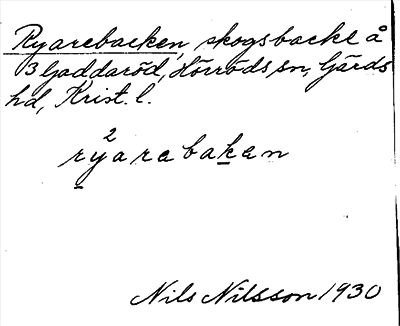 Ryarebacken, skogsbacke å
3 Gaddaröd, Hörröds sn, Gärds
hd, Krist. l.
2
ryarebaken
Nils Nilsson 1930